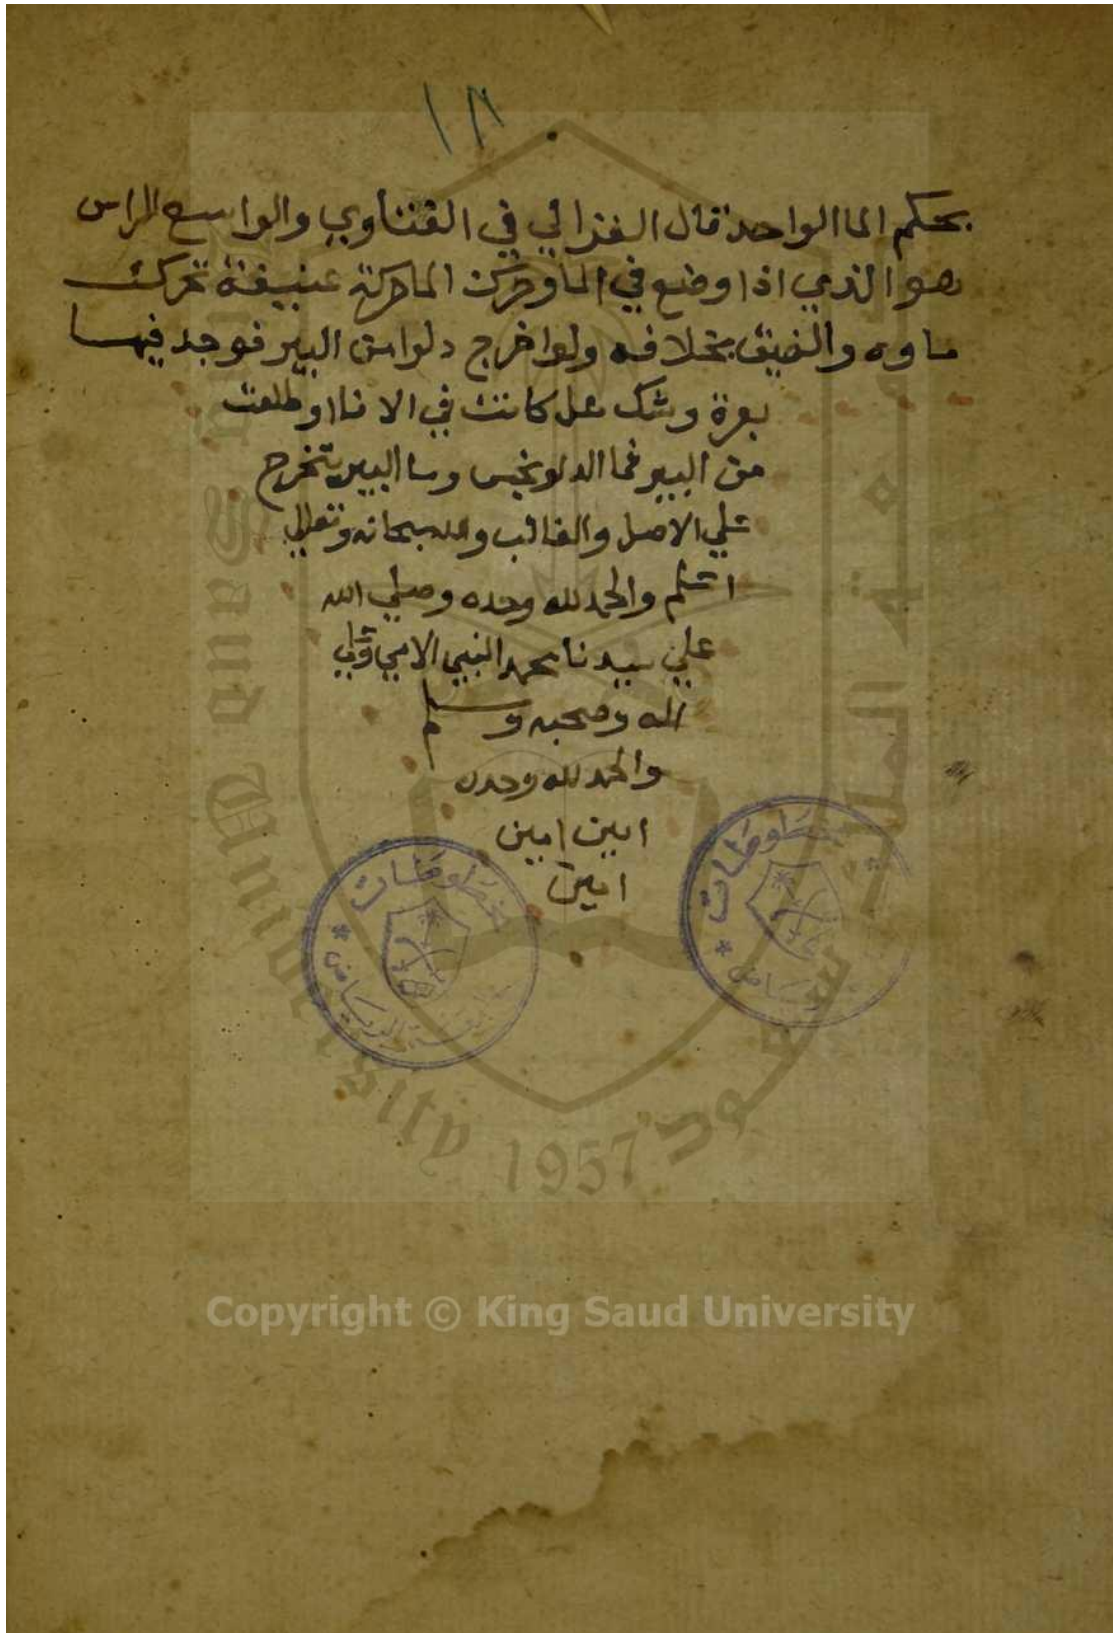 ١٨
بحكم الما الواحد قال الغزالي في الفتاوي والواسع الراس
هو الذي اذا وضع في الما وحركت الما حركة عنيفة تحرك
ماوه والضيق بخلافه ولو اخرج دلوا من البير فوجد فيها
بعرة وشك هل كانت في الانا او طلعت
من البير فما الدلو نجس وما البير يتخرج
علي الاصل والغالب والله سبحانه وتعالي
اعلم والحمد لله وحده وصلي الله
علي سيدنا محمد النبي الامي وعلي
اله وصحبه وسلم
والحمد لله وحده
امين امين
امين
مخطوطات
مخطوطات
الرياض
King Saud University 1957
جامعة الملك سعود
Copyright © King Saud University